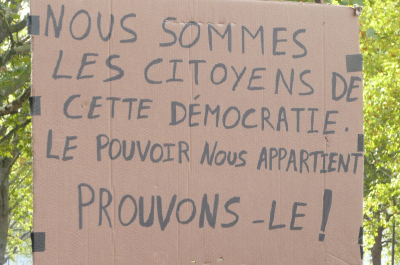 NOUS SOMMES
LES CITOYENS DE
CETTE DÉMOCRATIE.
LE POUVOIR NOUS APPARTIENT
PROUVONS-LE!